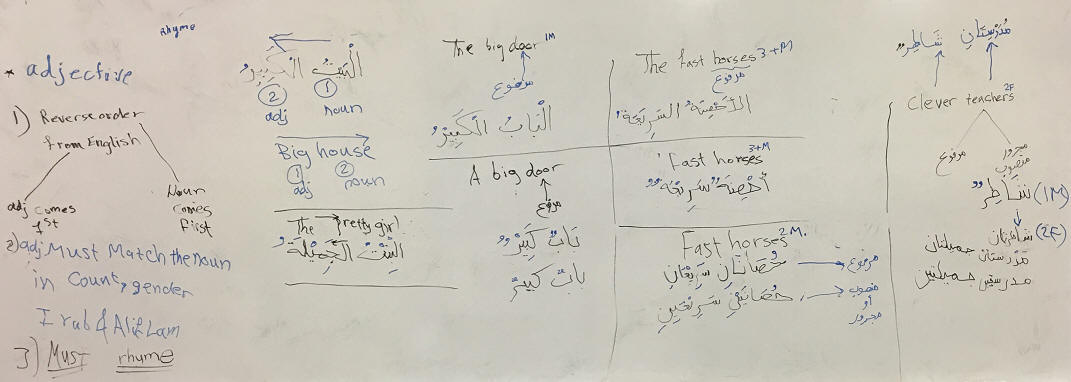 rhyme
* adjective
1) Reverse order
from English
adj comes
1st
Noun
comes
first
2) adj Must Match the noun
in Count, gender
Irab & Alif Lam
3) Must rhyme
الْبَيْتُ الْكَبِيرُ
② ①
adj noun
Big house
① ②
adj noun
The Pretty girl
الْبِنْتُ الْجَمِيْلَةُ
The big door 1M
مرفوع
الْبَابُ الْكَبِيْرُ
A big door
مرفوع
بَابٌ كَبِيْرٌ
بابٌ كبيرٌ
The fast horses 3+M
مرفوع
الأَحْصِنَةُ السَّرِيْعَةُ
Fast horses 3+M
أَحْصِنَةٌ سَرِيْعَةٌ
Fast horses 2M.
حُصَانَانِ سَرِيْعَانِ
مرفوع
حُصَانَيْنِ سَرِيْعَيْنِ
منصوب
أو
مجرور
مُدَرِّسَتَانِ شَاطِر
Clever teachers 2F
مرفوع
مجرور
منصوب
شَاطِرٌ (1M)
شاطرتان (2F)
مدرستان جميلتان
مدرستين جميلتين